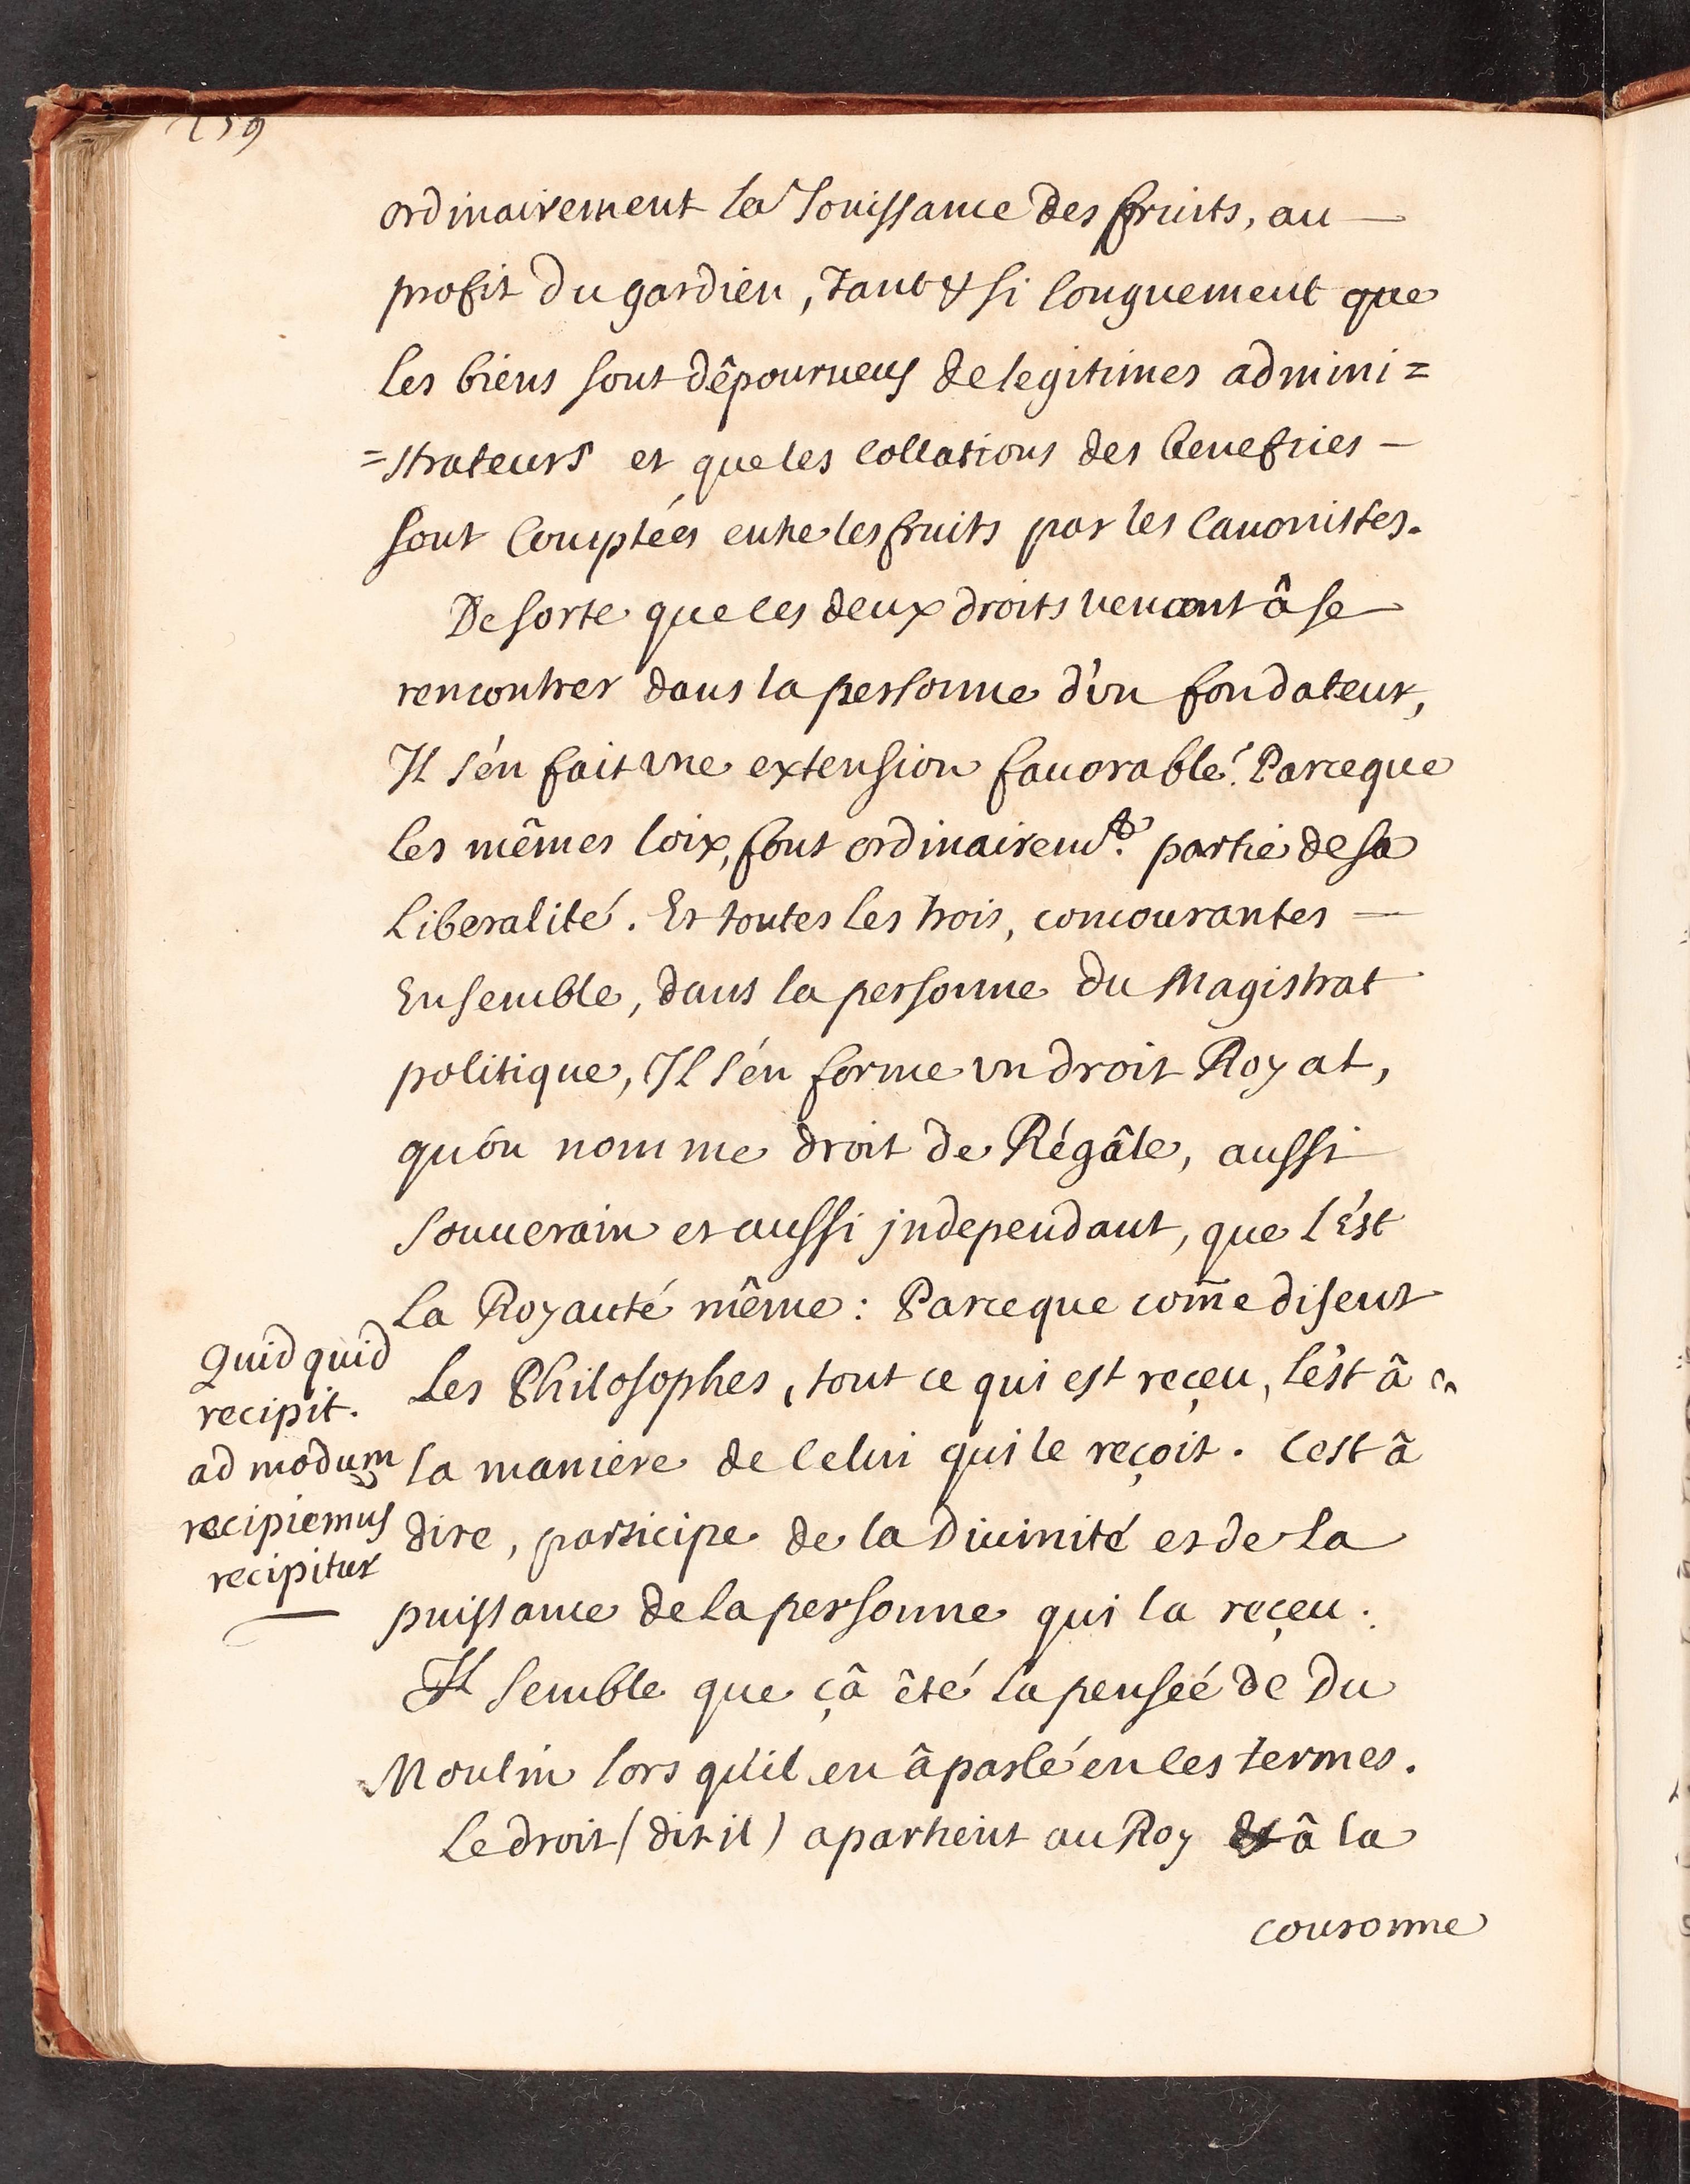 259
ordinairement la Jouissance des fruits, au —
profit du gardien, Tant & si longuement que
les biens sont dêpourueus de legitimes admini=
=strateurs et que les collations des benefices —
sont Comptées entre les fruits par les Canonistes.
De sorte que ces deux droits venant â se
rencontrer dans la personne d'vn fondateur,
Il s'en fait vne extension fauorable: Parceque
les mêmes loix, font ordinairem.t partie de sa
Liberalité. Et toutes les trois, concourantes —
Ensemble, dans la personne du Magistrat
politique, Il s'en forme vn droit Royal,
qu'on nomme droit de Régâle, aussi
Souuerain et aussi jndependant, que l'Est
La Royauté même : Parceque com̃e disent
Quidquid
recipit.
ad modum
recipiemus
recipitur
Les Philosophes, tout ce qui est reçeu, l'est â
la maniere de Celui qui le reçoit. C'est â
dire, participe de la Diuinité et de la
puissance de la personne qui la reçeu.
Il semble que çâ êté la pensée de Du
Moulin lors qu'il en â parlé en ces termes.
Le droit (dit il) apartient au Roy Et â la
couronne